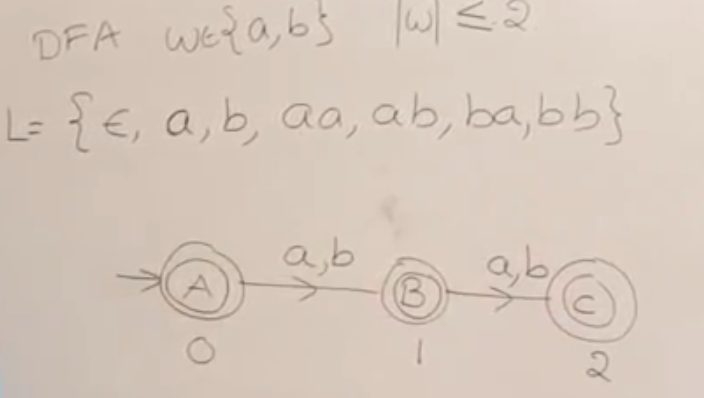 DFA wϵ{a,b} |w| ≤ 2
L= {ϵ, a, b, aa, ab, ba, bb}
a,b a,b
A B C
0 1 2